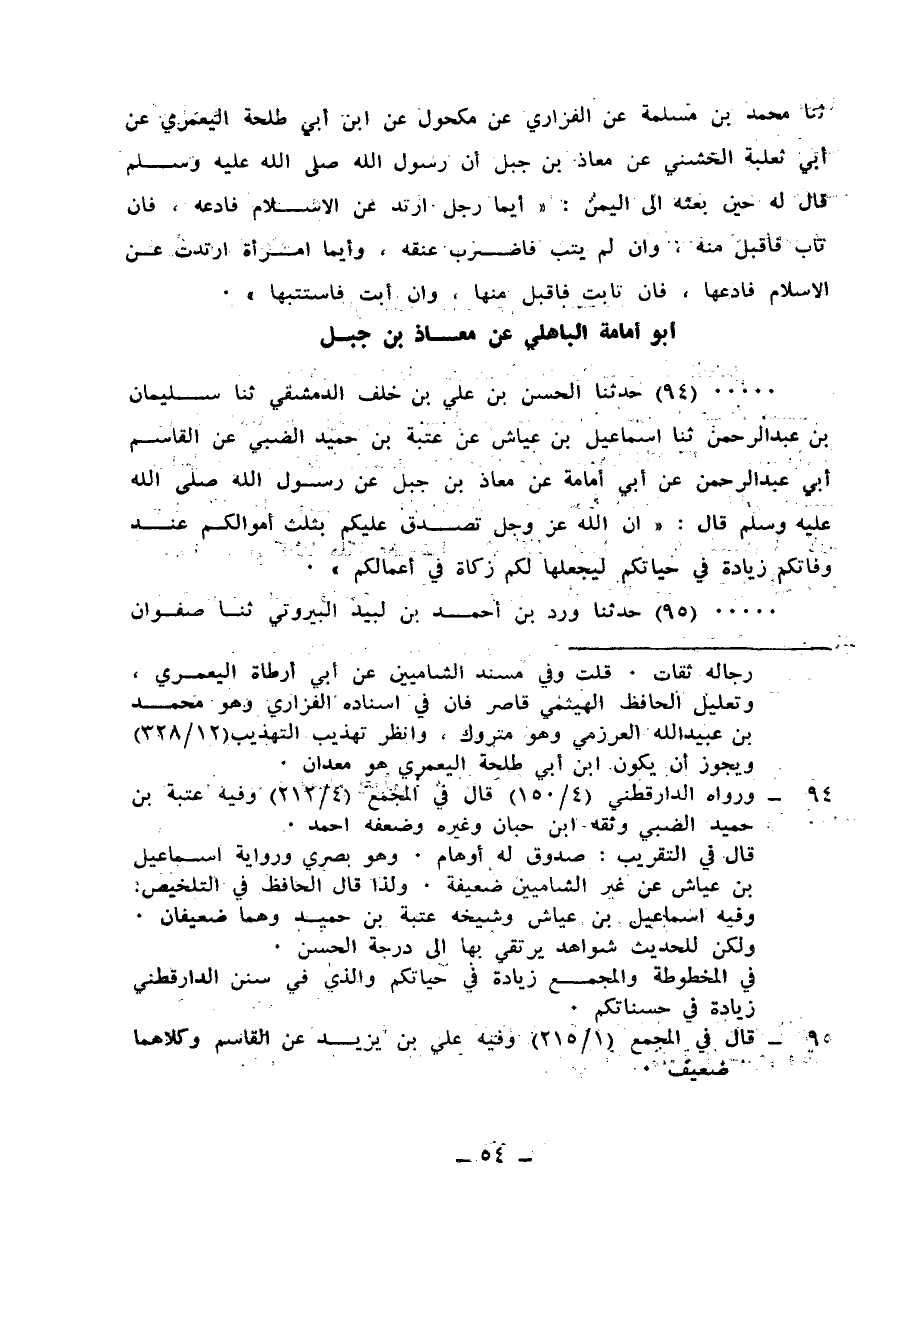 ثنا محمد بن مسلمة عن الفزاري عن مكحول عن ابن أبي طلحة اليعمري عن
أبي ثعلبة الخشني عن معاذ بن جبل أن رسول الله صلى الله عليه وسلم
قال له حين بعثه الى اليمن : « أيما رجل ارتد عن الاسلام فادعه ، فان
تاب فأقبل منه ، وان لم يتب فاضرب عنقه ، وأيما امرأة ارتدت عن
الاسلام فادعها ، فان تابت فاقبل منها ، وان أبت فاستتبها » ٠
أبو أمامة الباهلي عن معاذ بن جبل
٠٠٠٠٠ (٩٤) حدثنا الحسن بن علي بن خلف الدمشقي ثنا سليمان
بن عبدالرحمن ثنا اسماعيل بن عياش عن عتبة بن حميد الضبي عن القاسم
أبي عبدالرحمن عن أبي أمامة عن معاذ بن جبل عن رسول الله صلى الله
عليه وسلم قال : « ان الله عز وجل تصدق عليكم بثلث أموالكم عند
وفاتكم زيادة في حياتكم ليجعلها لكم زكاة في أعمالكم » ٠
٠٠٠٠٠ (٩٥) حدثنا ورد بن أحمد بن لبيد البيروتي ثنا صفوان
رجاله ثقات ٠ قلت وفي مسند الشاميين عن أبي أرطاة اليعمري ،
وتعليل الحافظ الهيثمي قاصر فان في اسناده الفزاري وهو محمد
بن عبيدالله العرزمي وهو متروك ، وانظر تهذيب التهذيب(٣٢٨/١٢)
ويجوز أن يكون ابن أبي طلحة اليعمري هو معدان ٠
٩٤ ـ ورواه الدارقطني (١٥٠/٤) قال في المجمع (٢١٢/٤) وفيه عتبة بن
حميد الضبي وثقه ابن حبان وغيره وضعفه احمد ٠
قال في التقريب : صدوق له أوهام ٠ وهو بصري ورواية اسماعيل
بن عياش عن غير الشاميين ضعيفة ٠ ولذا قال الحافظ في التلخيص:
وفيه اسماعيل بن عياش وشيخه عتبة بن حميد وهما ضعيفان ٠
ولكن للحديث شواهد يرتقي بها الى درجة الحسن ٠
في المخطوطة والمجمع زيادة في حياتكم والذي في سنن الدارقطني
زيادة في حسناتكم ٠
٩٥ ـ قال في المجمع (٢١٥/١) وفيه علي بن يزيد عن القاسم وكلاهما
ضعيف ٠
ـ ٥٤ ـ